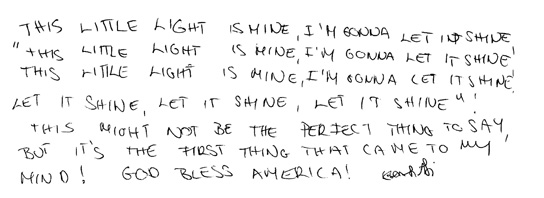 THIS LITTLE LIGHT IS MINE, I'M GONNA LET IT SHINE
"THIS LITTLE LIGHT IS MINE, I'M GONNA LET IT SHINE!
THIS LITTLE LIGHT IS MINE, I'M GONNA LET IT SHINE!
LET IT SHINE, LET IT SHINE, LET IT SHINE"!
THIS MIGHT NOT BE THE PERFECT THING TO SAY,
BUT IT'S THE FIRST THING THAT CAME TO MY
MIND! GOD BLESS AMERICA!